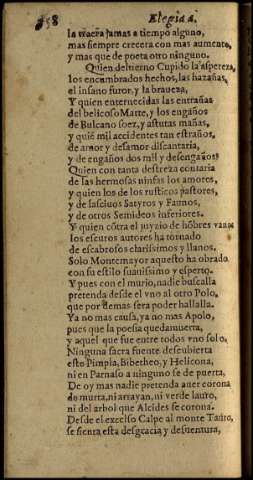 Elegia a.
la tracra jamas a tiempo alguno,
mas siempre crecera con mas aumento,
y mas que de poeta otro ninguno.
Quien del tierno Cupido la aspereza,
los encumbrados hechos, las hazañas,
el insano furor, y la braueza,
Y quien enternecidas las entrañas
del belicoso Marte, y los engaños
de Bulcano soez, y astutas mañas,
y quiẽ mil accidentes tan estraños,
de amor y desamor discantaria,
y de engaños dos mil y desengaños?
Quien con tanta destreza contaria
de las hermosas ninfas los amores,
y quien los de los rusticos pastores,
y de lasciuos Satyros y Faunos,
y de otros Semideos inferiores.
Y quien cõtra el juyzio de hõbres vanos
los escuros autores ha tornado
de escabrosos clarissimos y llanos,
Solo Montemayor aquesto ha obrado
con su estilo suauissimo y esperto.
Y pues con el murio, nadie buscalla
pretenda desde el vno al otro Polo,
que por demas sera poder hallalla.
Ya no mas causa, ya no mas Apolo,
pues que la poesia queda muerta,
y aquel que fue entre todos vno solo.
Ninguna sacra fuente descubierta
esto Pimpla, Bibetheo, y Helicona,
ni en Parnaso a ninguno se de puerta,
De oy mas nadie pretenda auer corona
do murta, ni arrayan, ni verde lauro,
ni del arbol que Alcides se corona.
Desde el excelso Calpe al monte Tauro,
se sienta esta desgracia y desuentura,